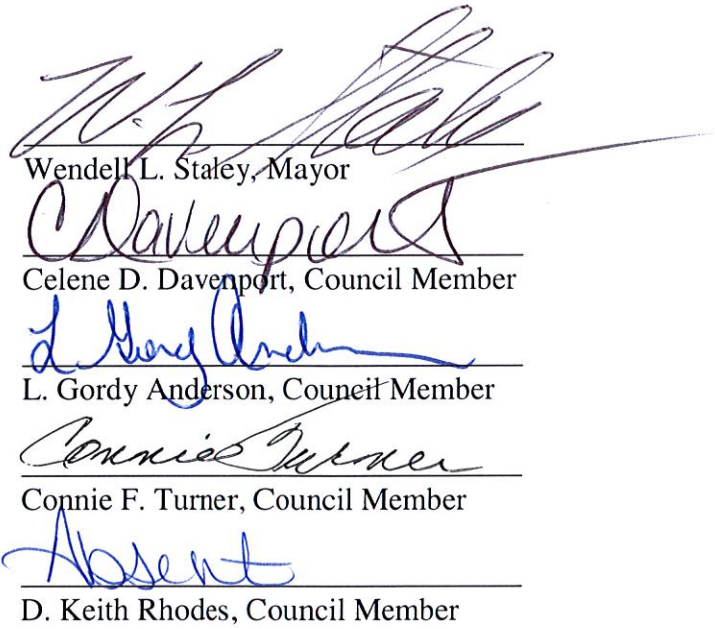 W. L. Staley
Wendell L. Staley, Mayor
C Davenport
Celene D. Davenport, Council Member
L Gordy Anderson
L. Gordy Anderson, Council Member
Connie Turner
Connie F. Turner, Council Member
Absent
D. Keith Rhodes, Council Member